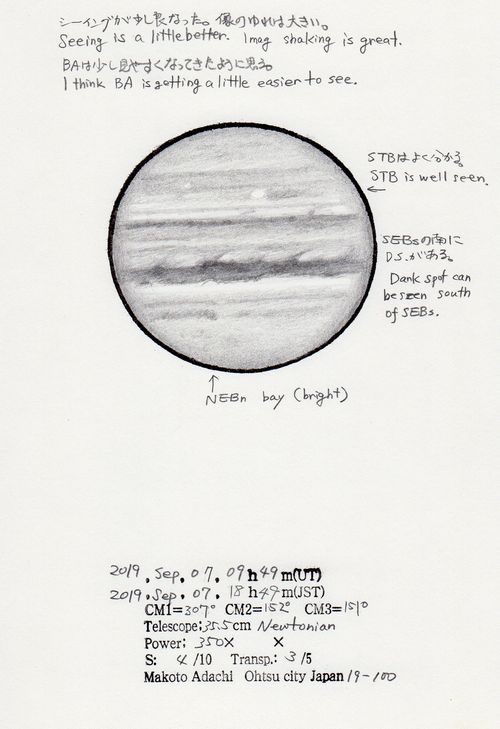 シーイングが少し良くなった。像のゆれは大きい。
Seeing is a little better. Imag shaking is great.
BAは少し見やすくなってきたように思う。
I think BA is getting a little easier to see.
STBはよく分かる。
STB is well seen.
←
SEBsの南に
D.S.がある。
Dank spot can
be seen south
of SEBs.
↑
NEBn bay (bright)
2019. Sep. 07. 09h49m(UT)
2019. Sep. 07. 18h49m(JST)
CM1=307° CM2=152° CM3=151°
Telescope: 35.5cm Newtonian
Power: 350X X
S: 4/10 Transp.: 3/5
Makoto Adachi Ohtsu city Japan 19-100